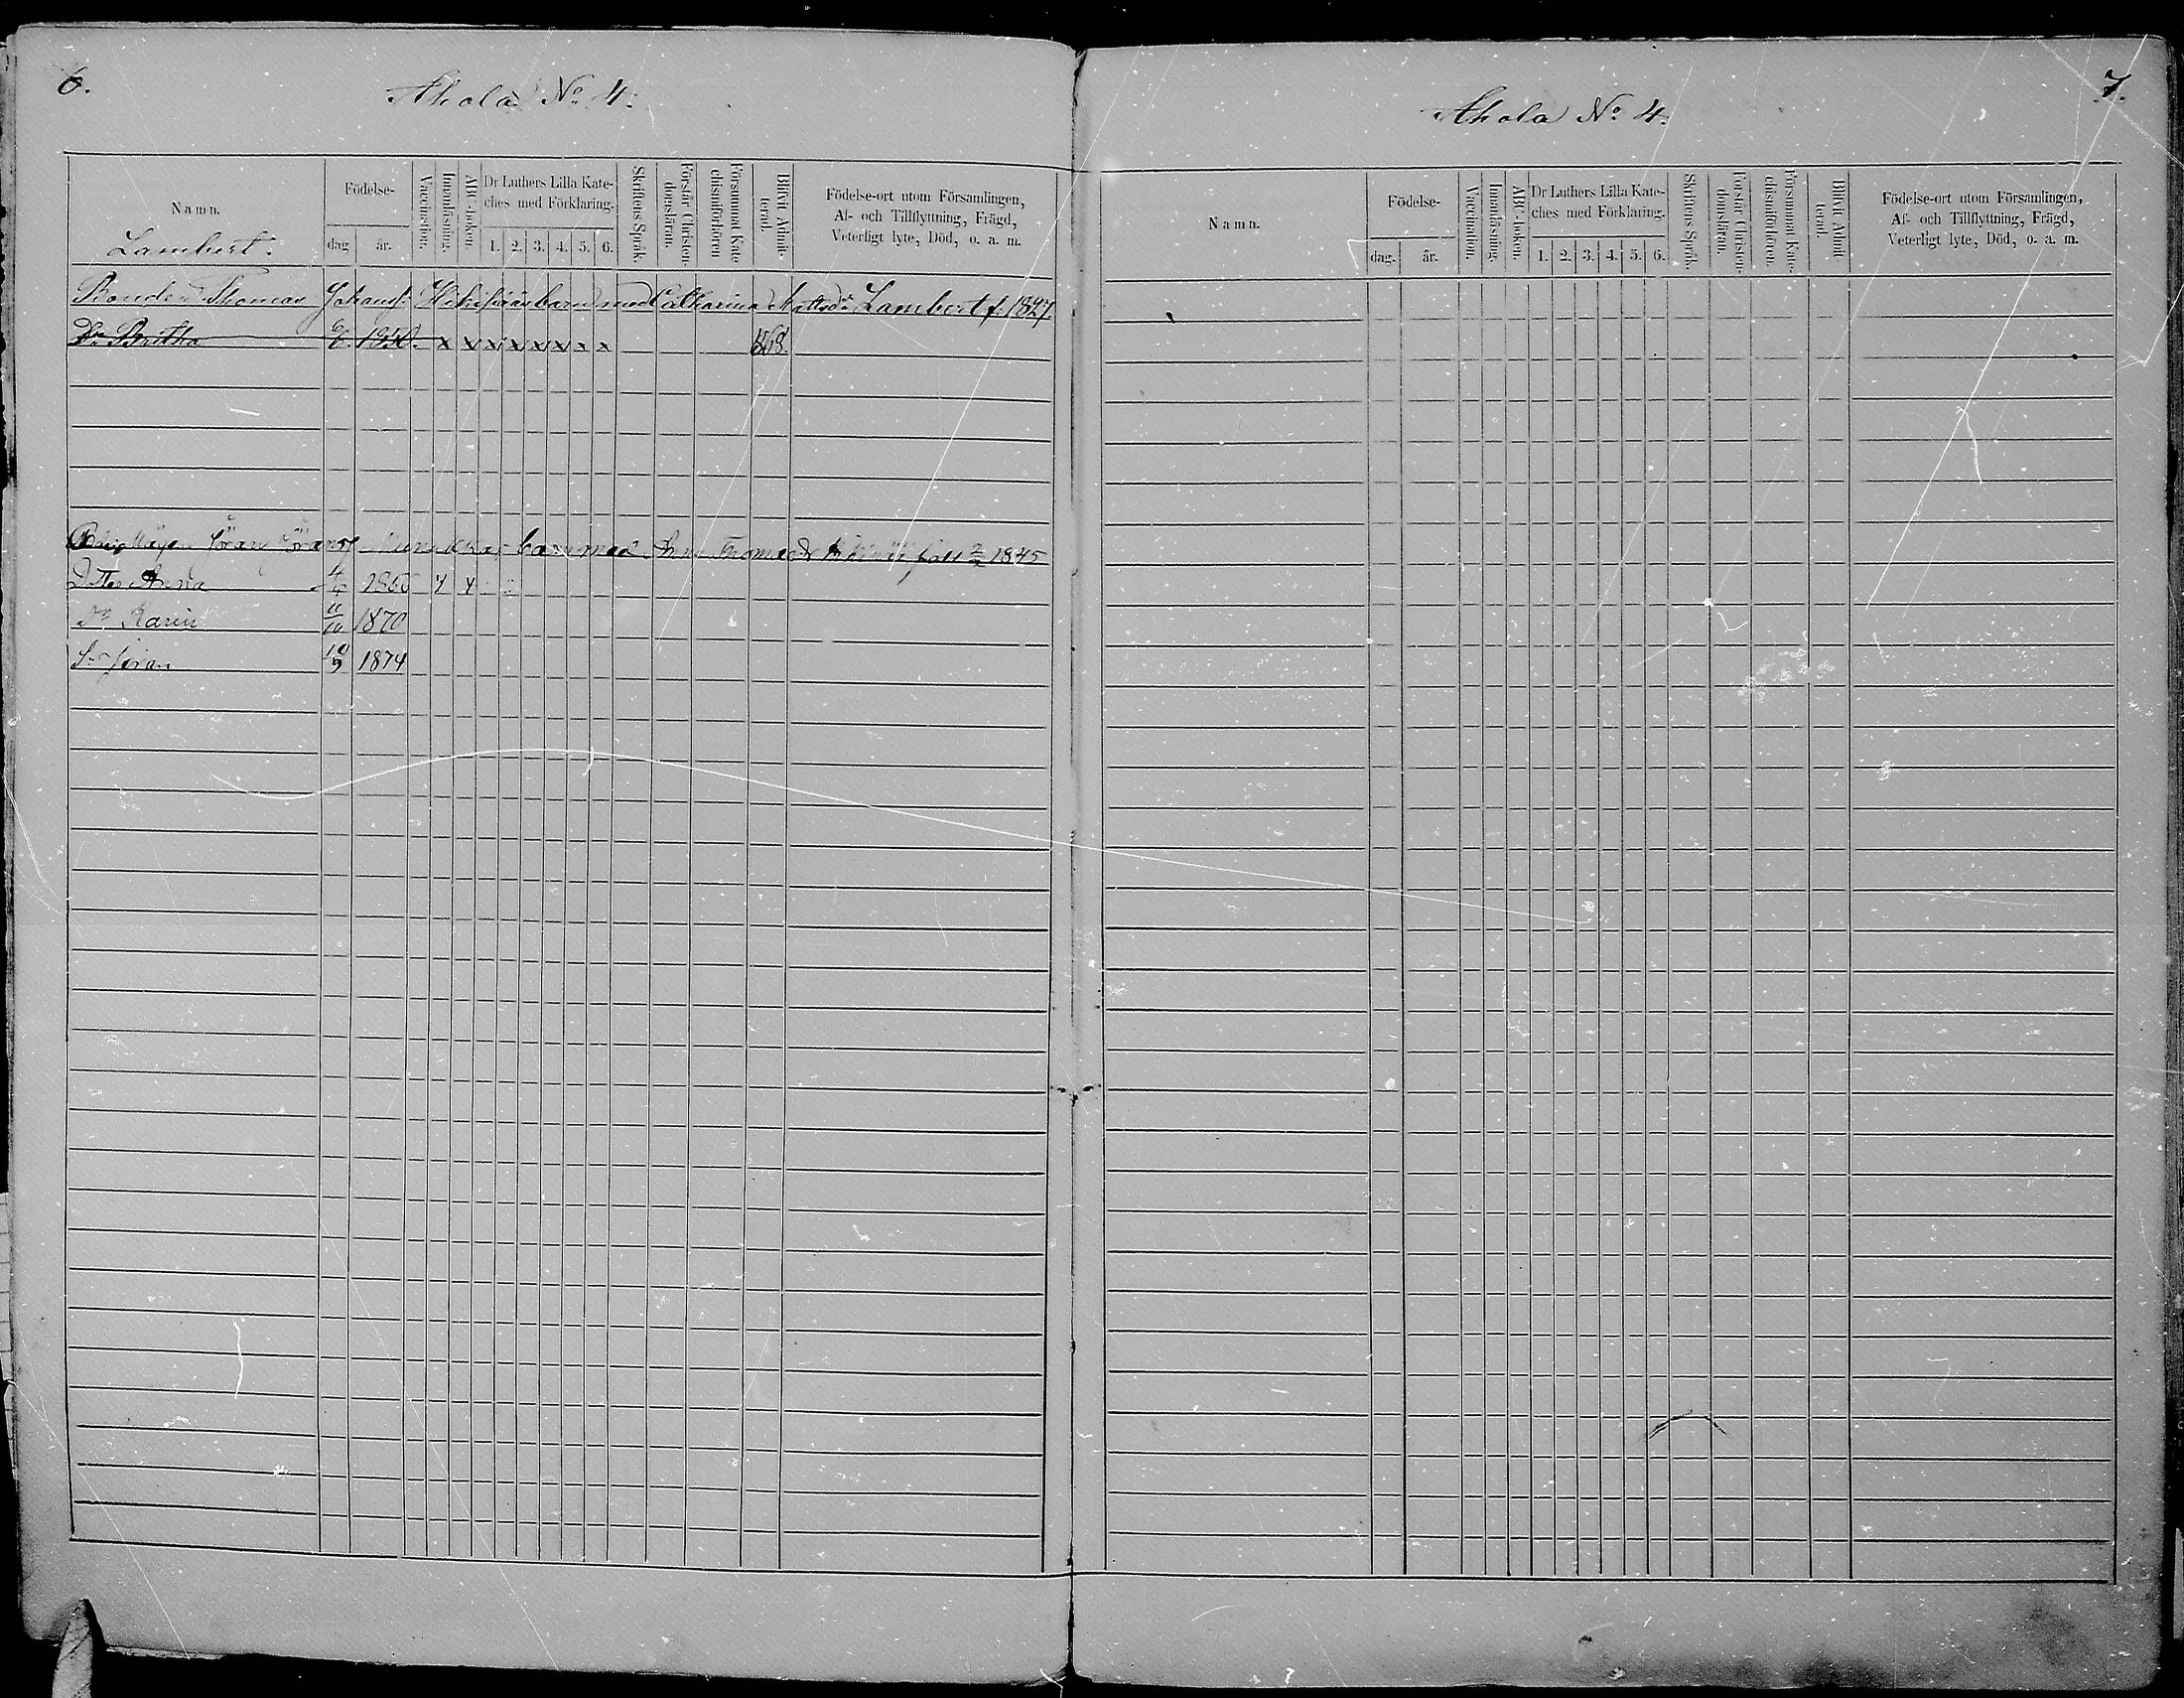 6.
Ahola No 4.
Namn.
Lambert.
Födelse-
dag
år.
Vaccination.
Innanläsning.
ABC-boken.
Dr Luthers Lilla Kate-
ches med Förklaring.
1. 2. 3. 4. 5. 6.
Skriftens Språk.
Förstår Christen-
domsläran.
Försummat Kate
chismiförhören
Blivit Admit-
terad.
Födelse-ort utom Församlingen,
Af- och Tillflyttning, Frägd,
Veterligt lyte, Död, o. a. m.
Bonden Thomas Johansf. barn med Catharina Lambert f. 1827.
Dr Britha 1850. x x x x x x x x 1868.
Jöran barn med 1845
Anna 4
Dr Karin 11/10 1870
Sn Jöran 10/9 1874
7.
Ahola No 4.
Namn.
Födelse-
dag.
år.
Vaccination.
Innanläsning.
ABC-boken.
Dr Luthers Lilla Kate-
ches med Förklaring.
1. 2. 3. 4. 5. 6.
Skriftens Språk.
Förstår Christen-
domsläran.
Försummat Kate-
chismiförhören.
Blivit Admit
terad.
Födelse-ort utom Församlingen,
Af- och Tillflyttning, Frägd,
Veterligt lyte, Död, o. a. m.